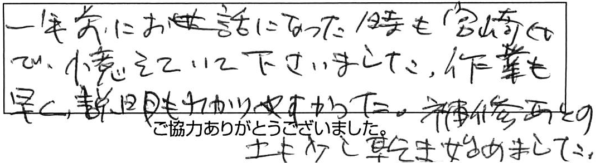 一年前にお世話になった時も宮崎くん
で、憶えていて下さいました。作業も
早く、説明もわかりやすかった。補修あとの
ご協力ありがとうございました。
土も少し乾き始めました。